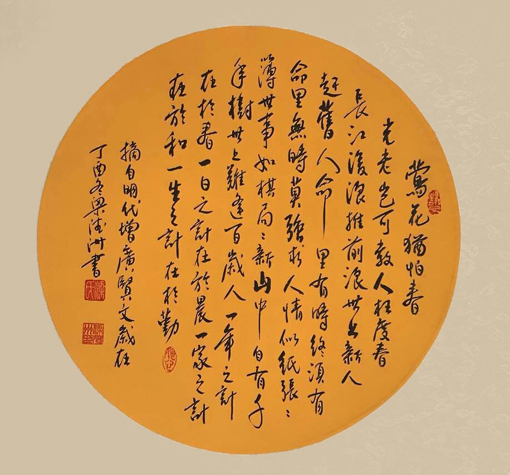 鶯花猶怕春
光老豈可教人枉度春
長江後浪推前浪世上新人
趕舊人命里有時終須有
命里無時莫強求人情似紙張〻
薄世事如棋局〻新山中自有千
年樹世上難逢百歲人一年之計
在於春一日之計在於晨一家之計
在於和一生之計在於勤
摘自明代增廣賢文歲在
丁酉冬梁書